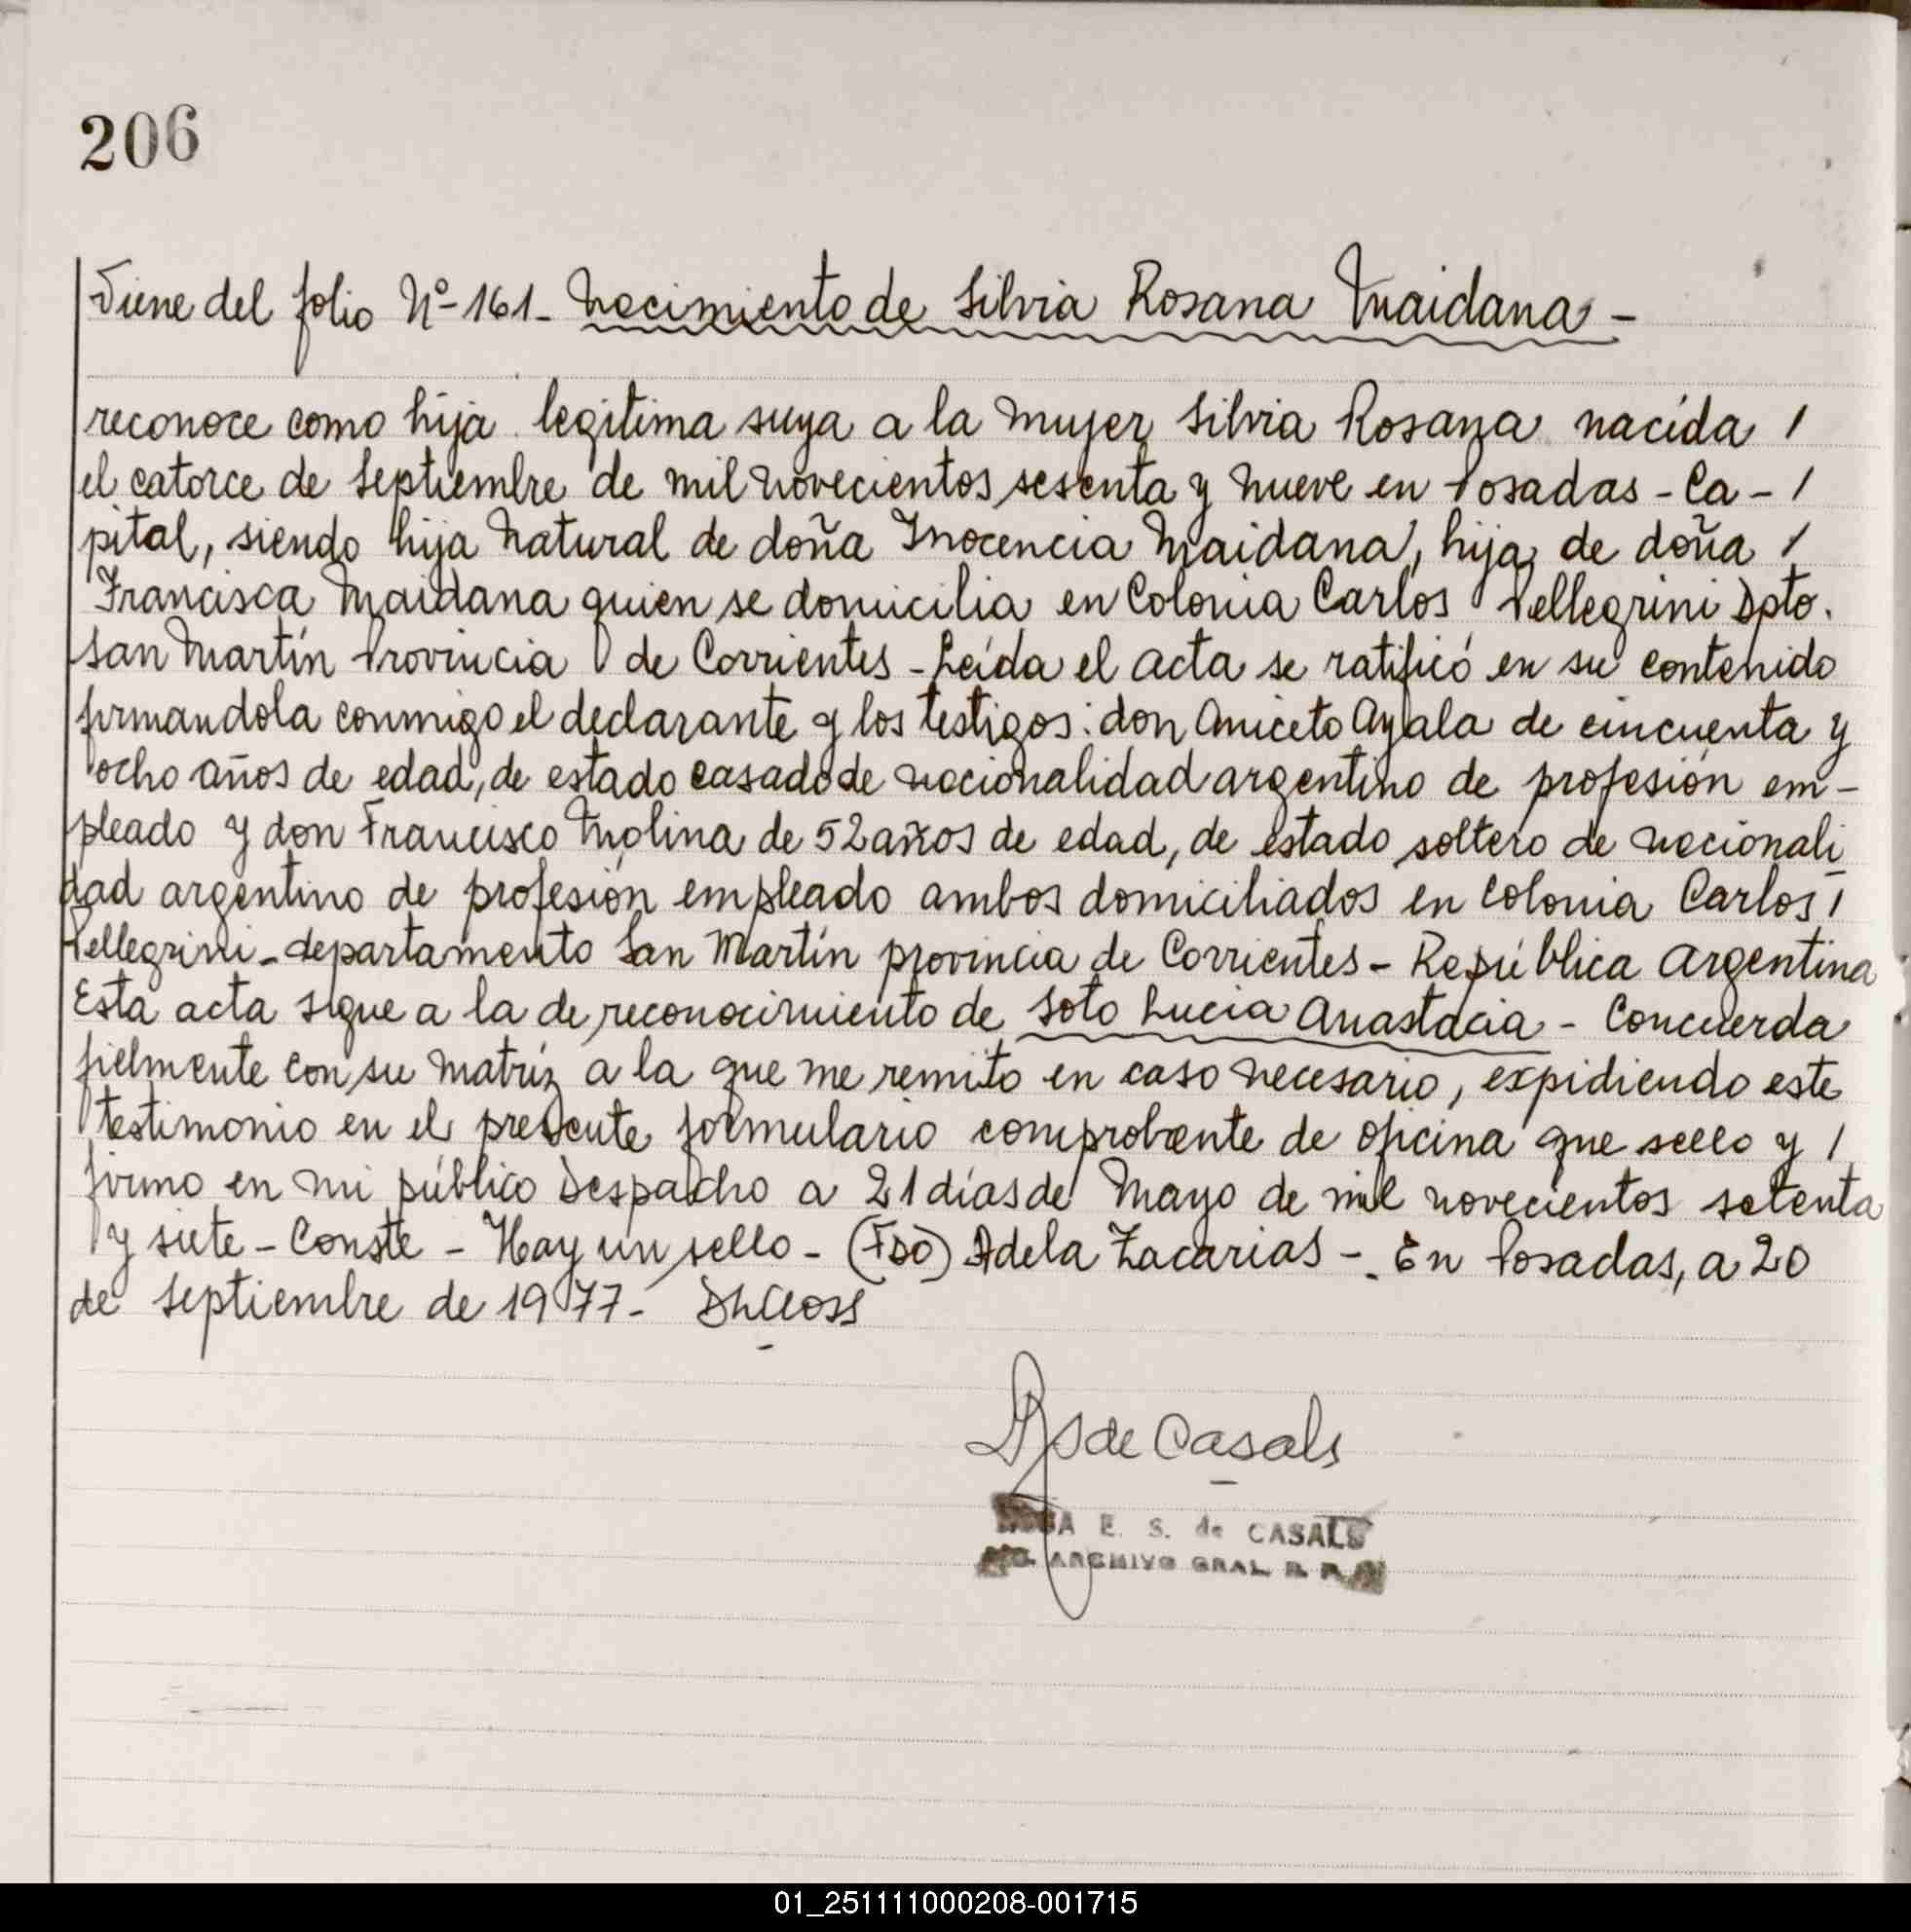 206
Viene del folio Nº-161- Nacimiento de Silvia Rosana Maidana-
reconoce como hija legítima suya a la mujer Silvia Rosana nacida /
el catorce de Septiembre de mil novecientos sesenta y nueve en Posadas - Ca- /
pital, siendo hija natural de doña Inocencia Maidana, hija de doña /
Francisca Maidana quien se domicilia en Colonia Carlos Pellegrini Dpto.
San Martín Provincia de Corrientes - Leída el acta se ratificó en su contenido
firmandola conmigo el declarante y los testigos: don Aniceto Ayala de cincuenta y
ocho años de edad, de estado casado de nacionalidad argentino de profesión em-
pleado y don Francisco Molina de 52 años de edad, de estado soltero de nacionali
dad argentino de profesión empleado ambos domiciliados en Colonia Carlos /
Pellegrini - departamento San Martín provincia de Corrientes - República Argentina
Esta acta sigue a la de reconocimiento de Soto Lucia Anastacia - Concuerda
fielmente con su matríz a la que me remito en caso necesario, expidiendo este
testimonio en el presente formulario comprobante de oficina que sello y /
firmo en mi público Despacho a 21 días de Mayo de mil novecientos setenta
y siete - Conste - Hay un sello - (Fdo) Adela Zacarias -. En Posadas, a 20
de Septiembre de 1977-
de Casals
E. S. de CASALS
ARCHIVO GRAL. R. P.
01_251111000208-001715